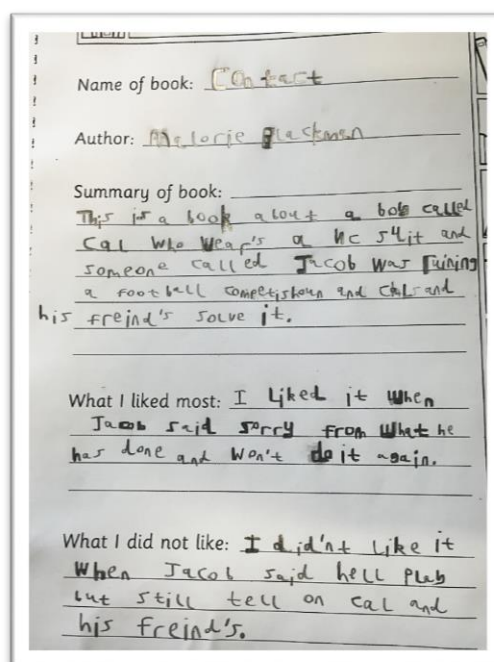 Name of book: Contact
Author: Malorie Blackman
Summary of book:
This is a book about a boy called
Cal who Wear's a HC suit and
someone called Jacob was ruining
a football competishoun and and
his freind's solve it.
What I liked most: I Liked it when
Jacob said sorry from what he
has done and won't do it again.
What I did not like: I did'nt like it
when Jacob said
but still tell on Cal and
his freind's.